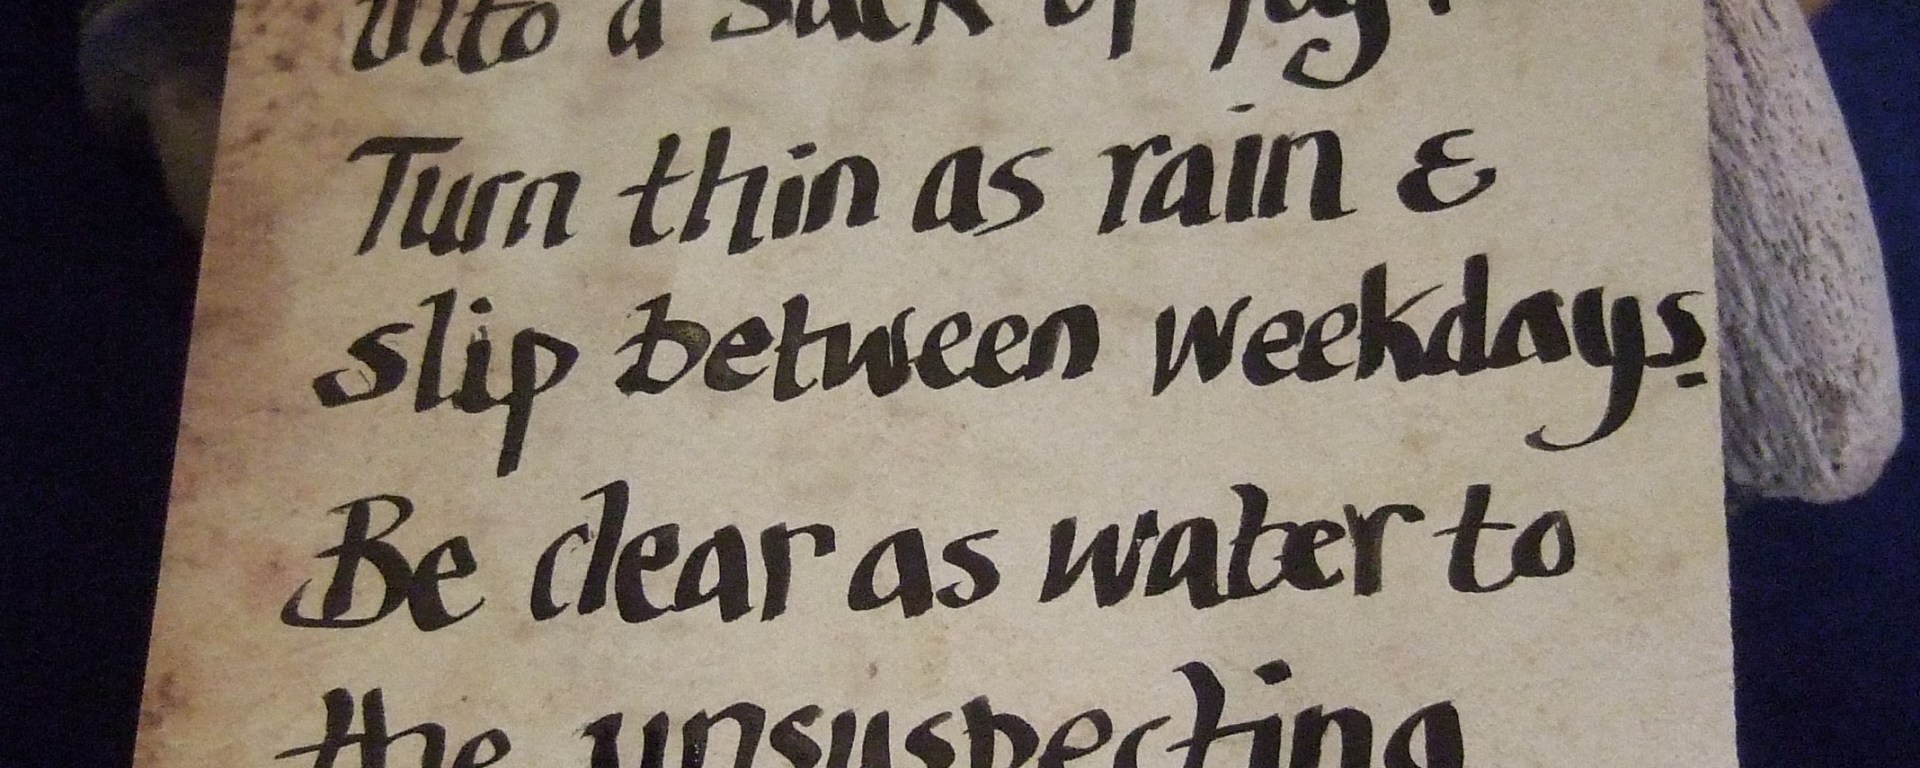 into a sack of fog.
Turn thin as rain &
slip between weekdays.
Be clear as water to
the unsuspecting